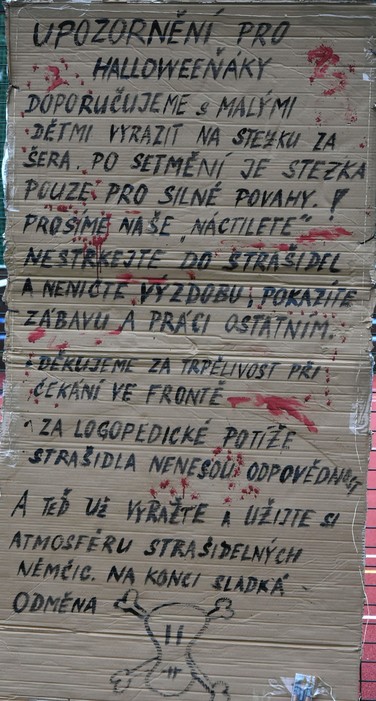 UPOZORNĚNÍ PRO
HALLOWEEŇÁKY
DOPORUČUJEME S MALÝMI
DĚTMI VYRAZIT NA STEZKU ZA
ŠERA. PO SETMĚNÍ JE STEZKA
POUZE PRO SILNÉ POVAHY. !
PROSÍME NAŠE „NÁCTILETÉ"
NESTRKEJTE DO STRAŠIDEL
A NENIČTE VÝZDOBU, POKAZÍTE
ZÁBAVU A PRÁCI OSTATNÍM.
DĚKUJEME ZA TRPĚLIVOST PŘI
ČEKÁNÍ VE FRONTĚ
ZA LOGOPEDICKÉ POTÍŽE
STRAŠIDLA NENESOU ODPOVĚDNOST
A TEĎ UŽ VYRAZTE A UŽIJTE SI
ATMOSFÉRU STRAŠIDELNÝCH
NĚMČIC. NA KONCI SLADKÁ
ODMĚNA